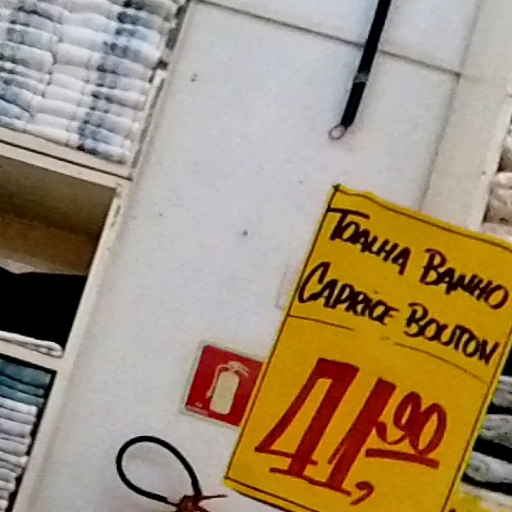 TOALHA BANHO
CAPRICE BOUTON
41,90